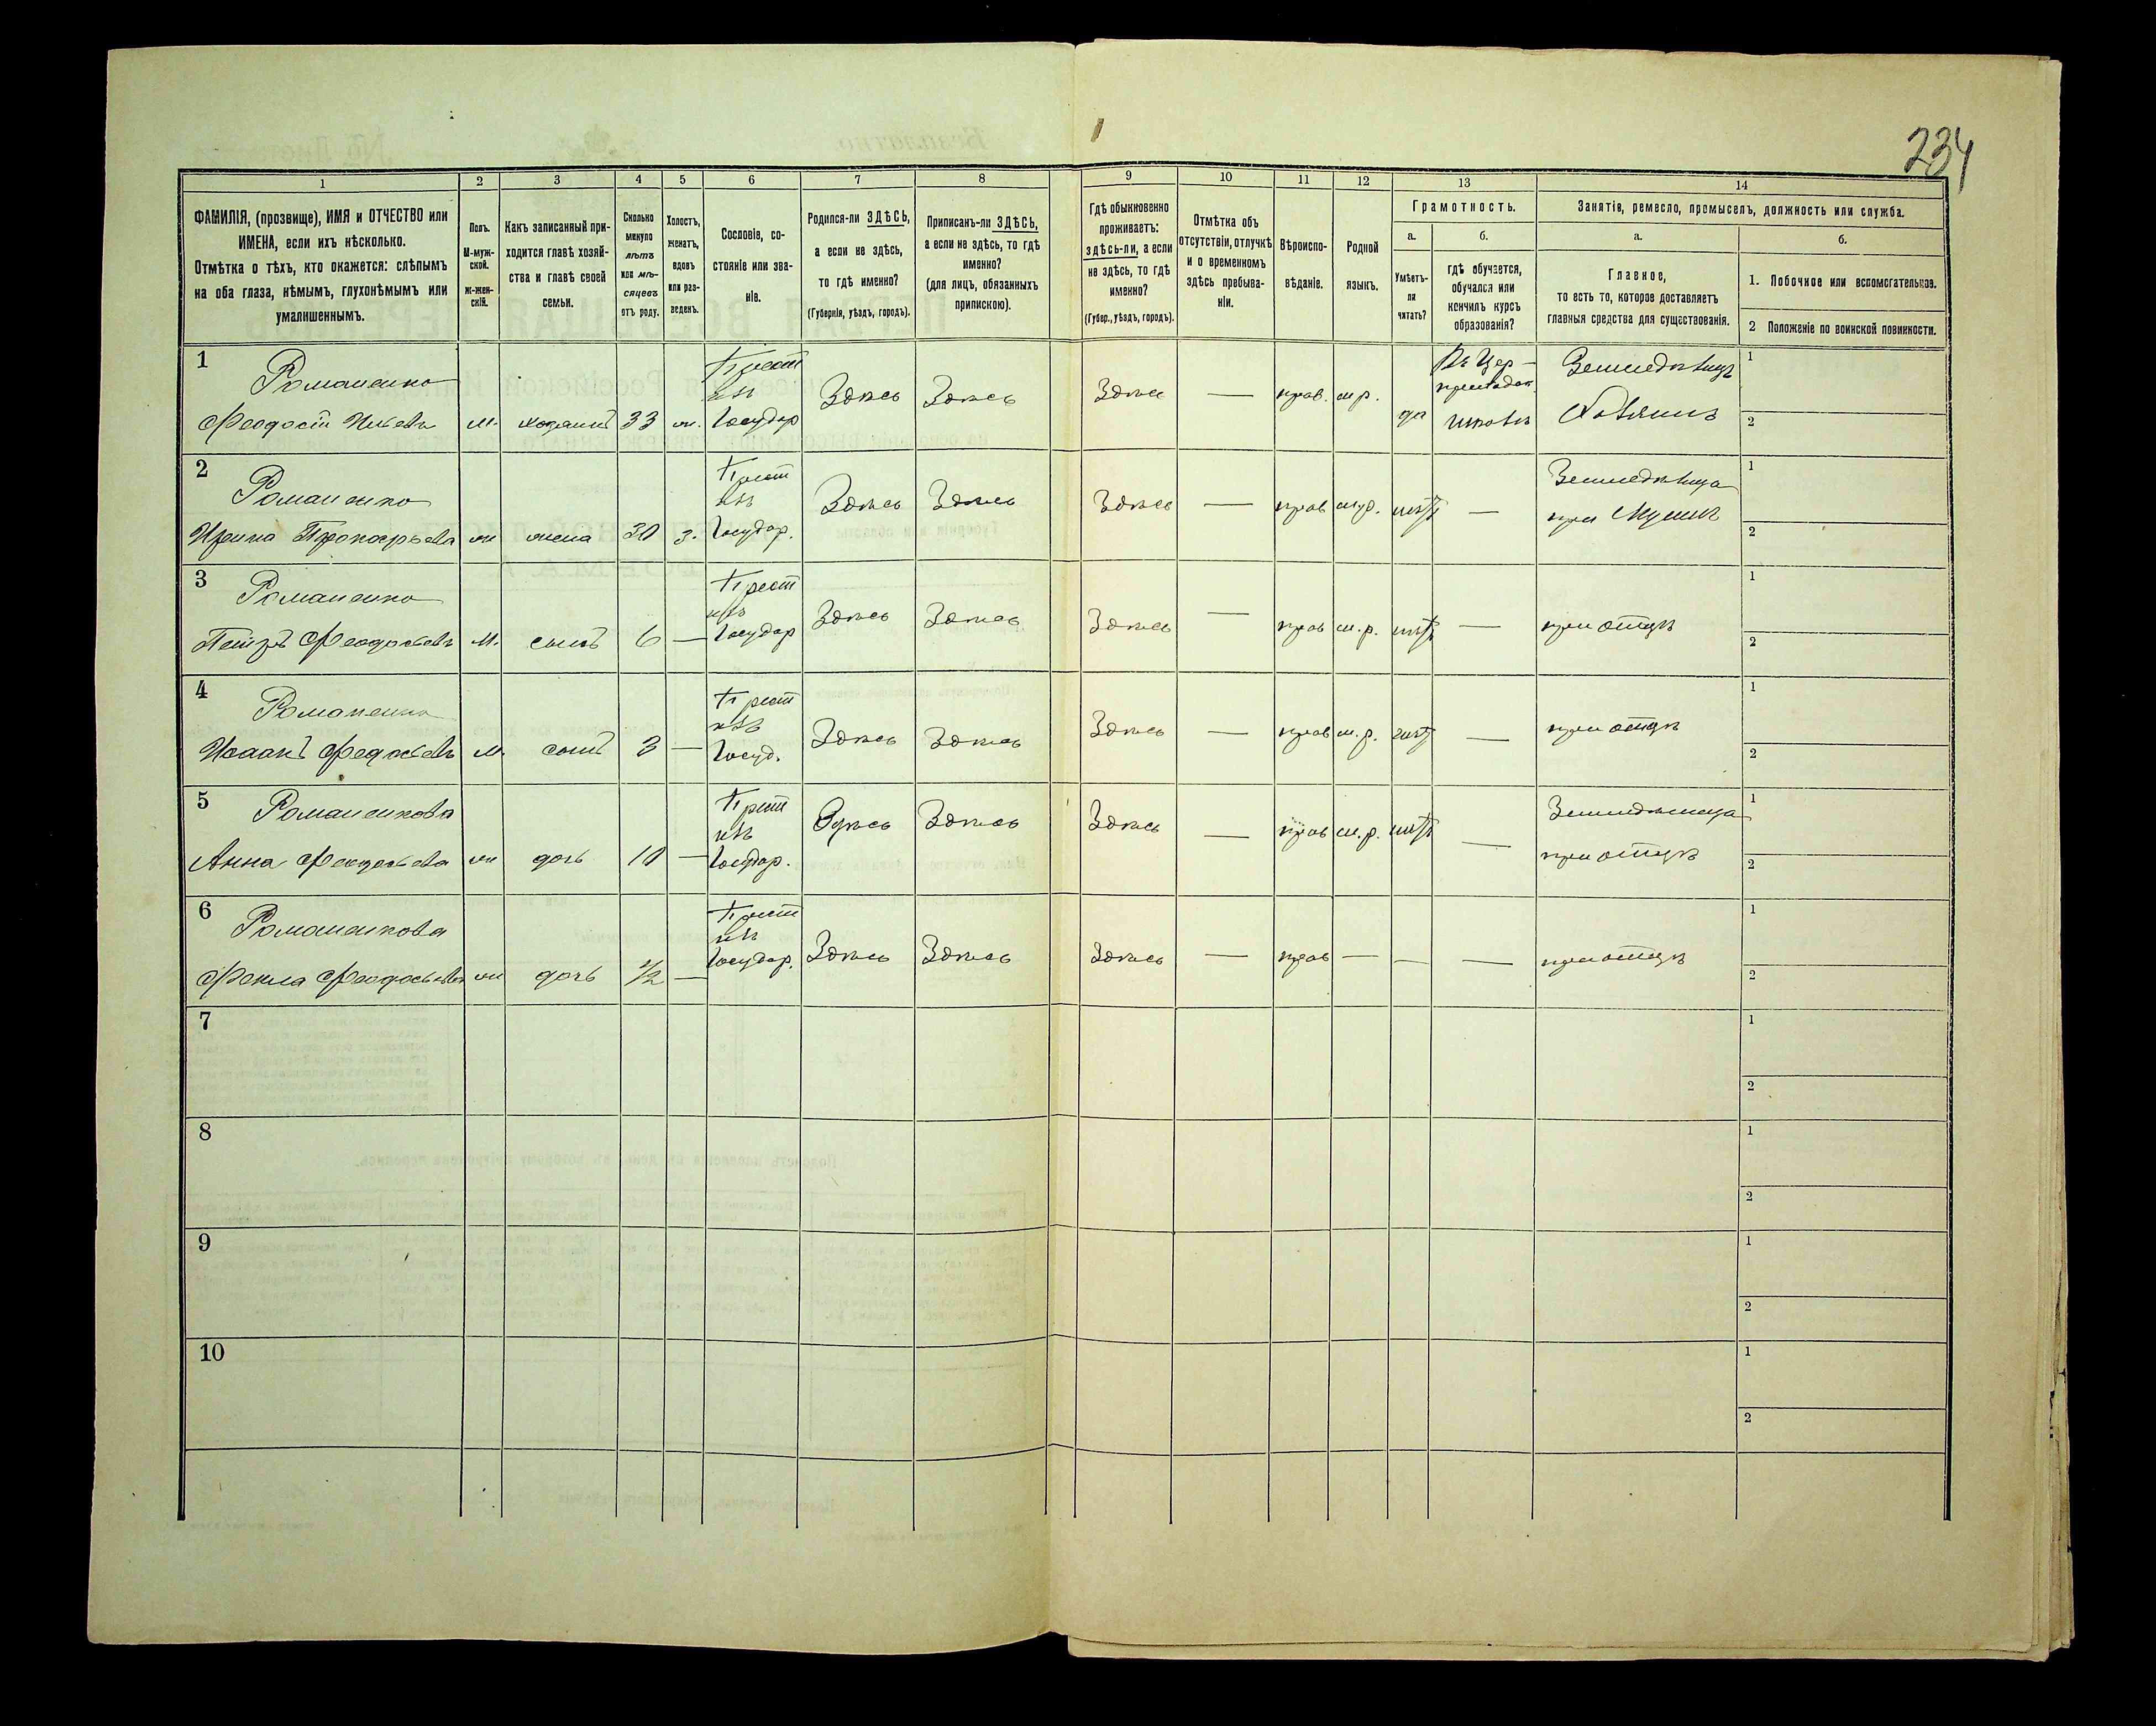 234
1
2
3
4
5
6
7
8
9
10
11
12
13
14
ФАМИЛІЯ, (прозвище), ИМЯ и ОТЧЕСТВО или
ИМЕНА, если ихъ нѣсколько.
Отмѣтка о тѣхъ, кто окажется: слѣпымъ
на оба глаза, нѣмымъ, глухонѣмымъ или
умалишеннымъ.
Полъ.
М-муж-
ской.
ж-жен-
скій.
Какъ записанный при-
ходится главѣ хозяй-
ства и главѣ своей
семьи.
Сколько
минуло
лѣтъ
или мѣ-
сяцевъ
отъ роду.
Холостъ,
женатъ,
вдовъ
или раз-
веденъ.
Сословіе, со-
стояніе или зва-
ніе.
Родился-ли ЗДѢСЬ,
а если не здѣсь,
то гдѣ именно?
(Губернія, уѣздъ, городъ).
Приписанъ-ли ЗДѢСЬ,
а если не здѣсь, то гдѣ
именно?
(для лицъ, обязанныхъ
припискою).
Гдѣ обыкновенно
проживаетъ:
здѣсь-ли, а если
не здѣсь, то гдѣ
именно?
(Губер., уѣздъ, городъ).
Отмѣтка объ
отсутствіи, отлучкѣ
и о временномъ
здѣсь пребыва-
ніи.
Вѣроиспо-
вѣданіе.
Родной
языкъ.
Грамотность.
а.
Умѣетъ-
ли
читать?
б.
гдѣ обучается,
обучался или
кончилъ курсъ
образованія?
Занятіе, ремесло, промыселъ, должность или служба.
а.
Главное,
то есть то, которое доставляетъ
главныя средства для существованія.
б.
1. Побочное или вспомогательное.
2 Положеніе по воинской повинности.
1
Романенко
Феодосій
м. хозяинъ 33 ж.
Крест
изъ
Государ
Здѣсь Здѣсь Здѣсь — прав. м.р. да
Въ Цер-
приходск
школѣ
Земледѣлецъ
Хозяинъ
1
2
2
Романенко
Ирина Прокофьева ж жена 30 з.
Крест
изъ
Государ.
Здѣсь Здѣсь Здѣсь — прав нѣтъ —
Земледѣлица
при Мужѣ
1
2
3
Романенко
Петръ Феодосьевъ м. сынъ 6 —
Крест
изъ
Государ
Здѣсь Здѣсь Здѣсь — прав м.р. нѣтъ — при отцѣ
1
2
4
Романенко
Исаакъ Федосьевъ м. сынъ 3 —
Крест
изъ
Госуд.
Здѣсь Здѣсь Здѣсь — прав м.р. нѣтъ — при отцѣ
1
2
5
Романенкова
Анна Феодосьева ж дочь 10 —
Крест
изъ
Государ.
Здѣсь Здѣсь Здѣсь — прав м.р. нѣтъ —
Земледѣлица
при отцѣ
1
2
6
Романенкова
Фекла Феодосьева ж дочь 1/2 —
Крест
изъ
Государ.
Здѣсь Здѣсь Здѣсь — прав — — — при отцѣ
1
2
7
1
2
8
1
2
9
1
2
10
1
2